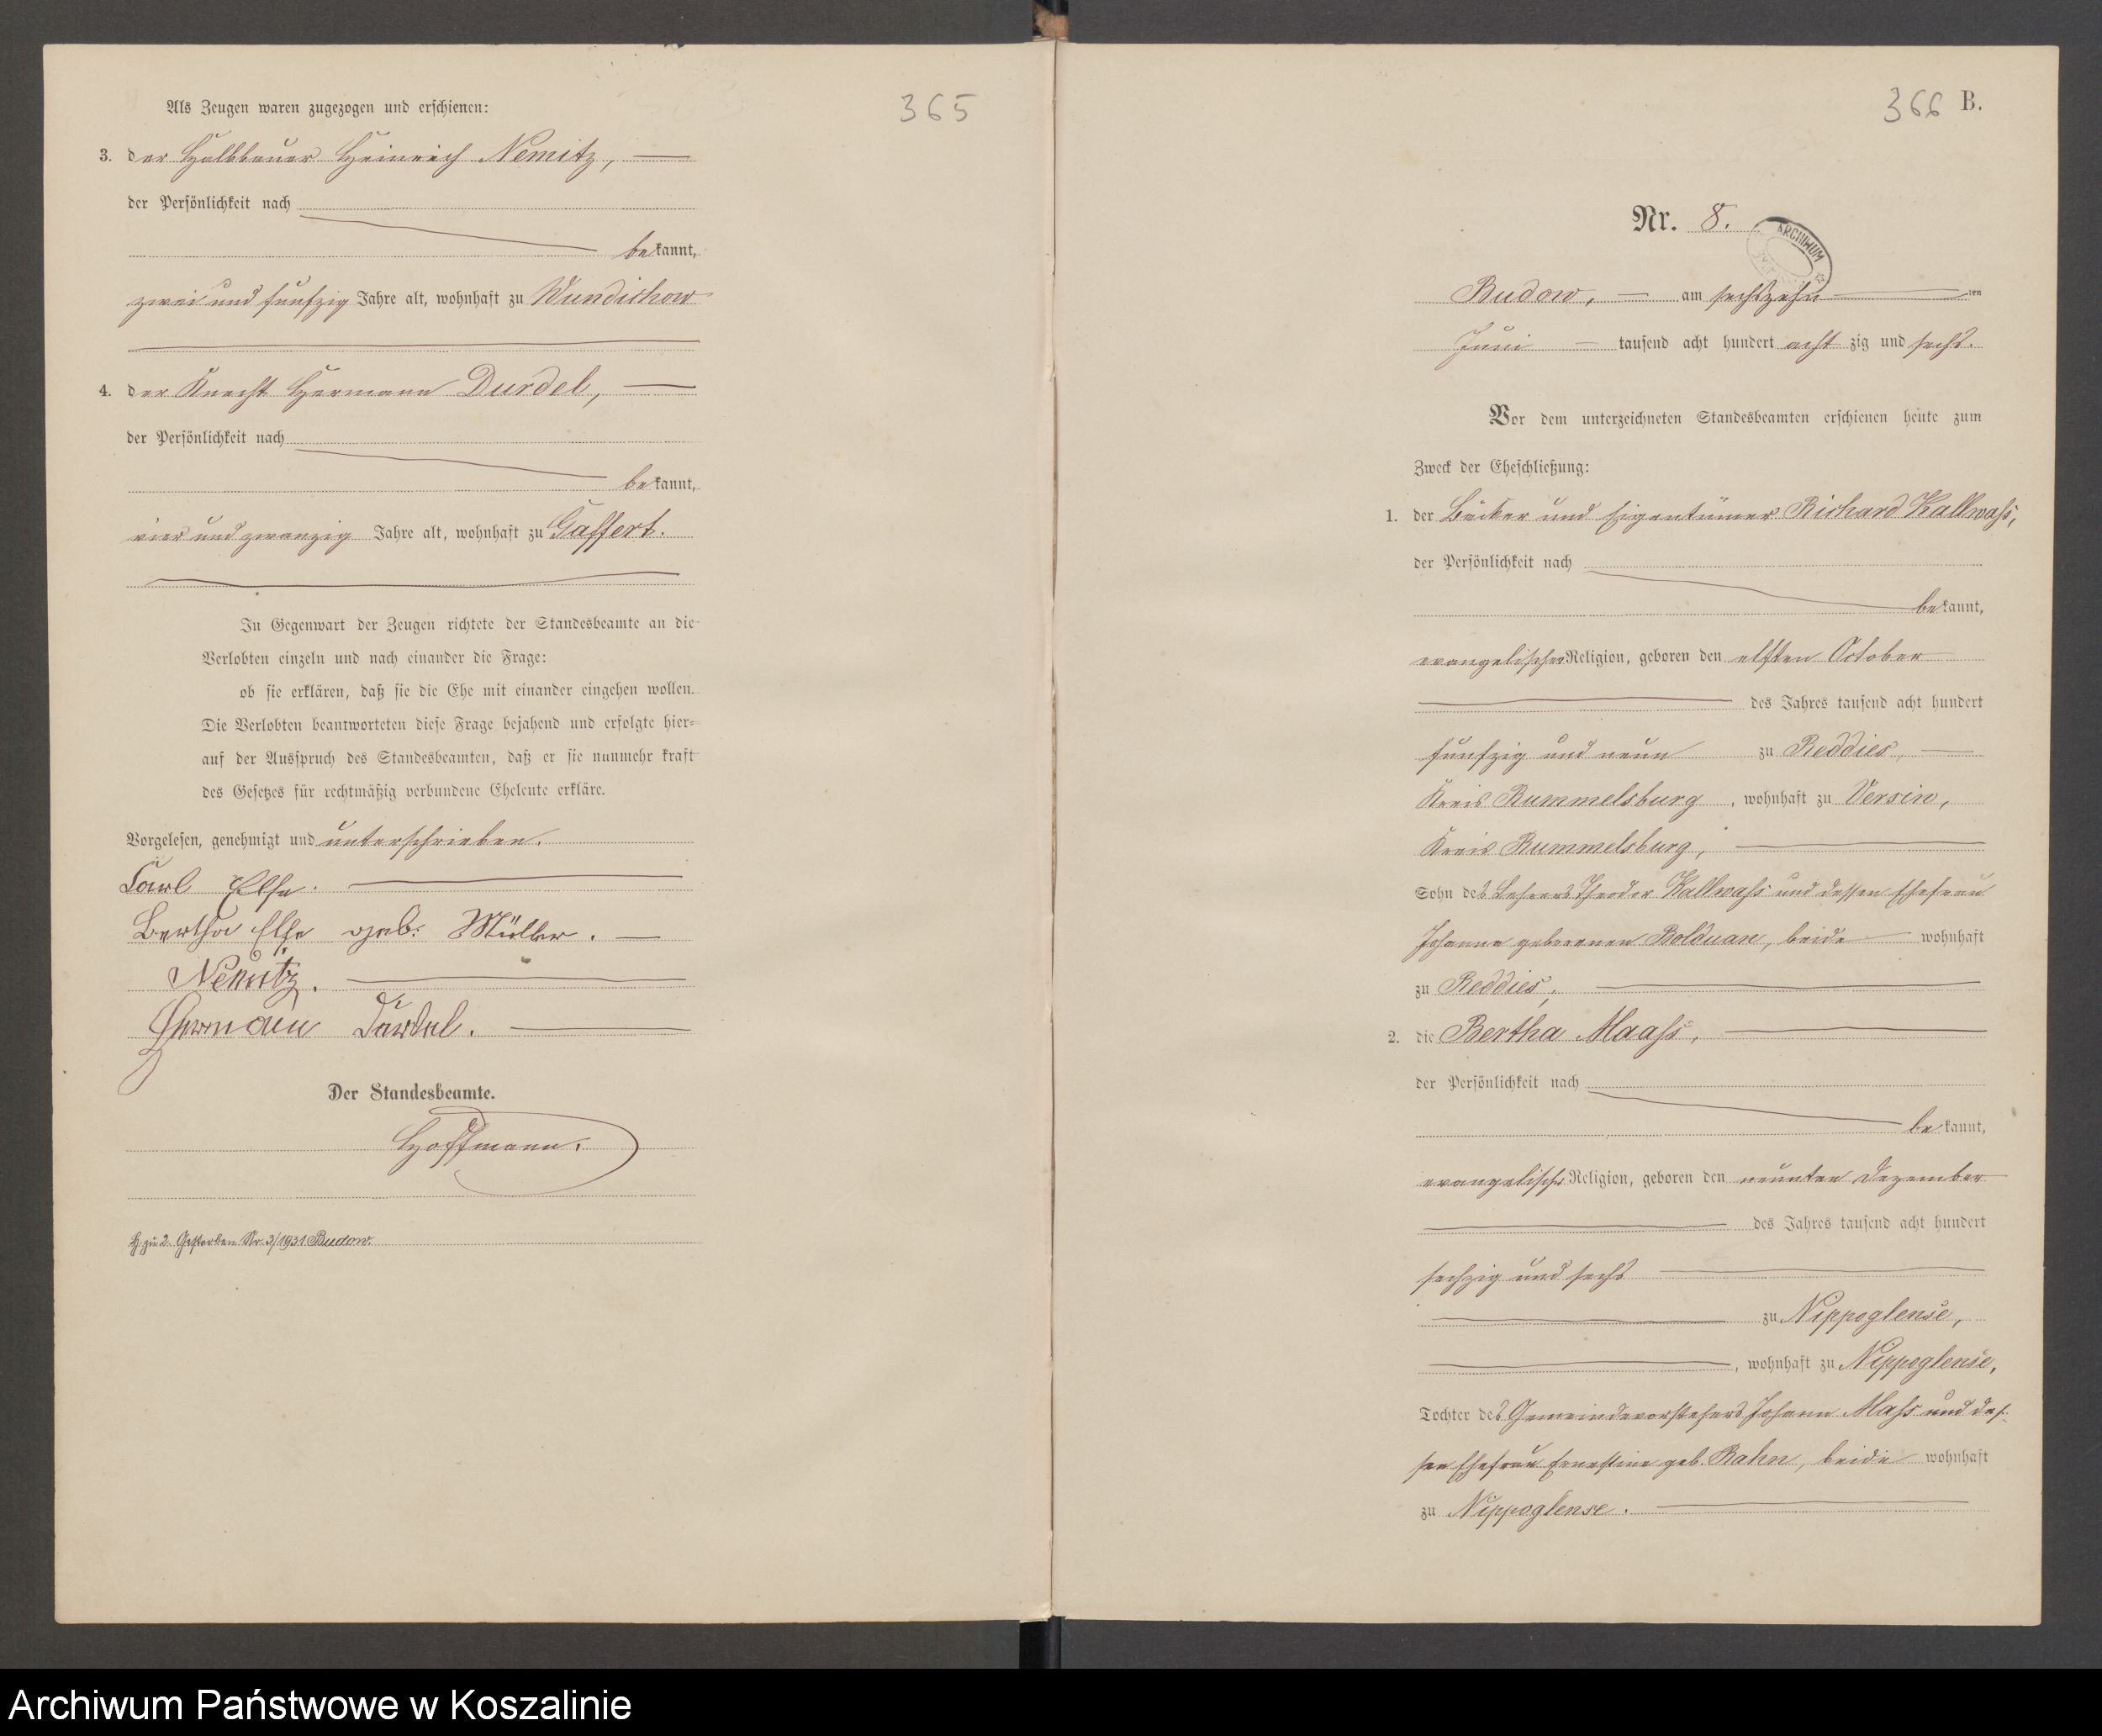 365
Als Zeugen waren zugezogen und erschienen:
3. der Halbbauer Heinrich Nemitz,
der Persönlichkeit nach
bekannt,
zwei und funfzig Jahre alt, wohnhaft zu Wundichow
4. der Knecht Hermann Durdel,
der Persönlichkeit nach
bekannt,
vier und zwanzig Jahre alt, wohnhaft zu Gaffert.
In Gegenwart der Zeugen richtete der Standesbeamte an die
Verlobten einzeln und nach einander die Frage:
ob sie erklären, daß sie die Ehe mit einander eingehen wollen.
Die Verlobten beantworteten diese Frage bejahend und erfolgte hier-
auf der Ausspruch des Standesbeamten, daß er sie nunmehr kraft
des Gesetzes für rechtmäßig verbundene Eheleute erkläre.
Vorgelesen, genehmigt und unterschrieben.
Carl
Bertha geb. Müller.
Nemitz.
Hermann Durdel.
Der Standesbeamte.
Hoffmann.
H. zu 2. Gestorben Nr. 3/1931 Budow.
366 B.
Nr. 8.
ARCHIWUM
Budow, am sechszehn ten
Juni tausend acht hundert acht zig und sechs.
Vor dem unterzeichneten Standesbeamten erschienen heute zum
Zweck der Eheschließung:
1. der Bäcker und Eigentümer Richard Kallwass,
der Persönlichkeit nach
bekannt,
evangelischer Religion, geboren den elften October
des Jahres tausend acht hundert
funfzig und neun zu Reddies,
Kreis Rummelsburg, wohnhaft zu Versin,
Kreis Rummelsburg,
Sohn des Lehrers Theodor Kallwass und dessen Ehefrau
Johanna geborenen Bolduan, beide wohnhaft
zu Reddies,
2. die Bertha Maass,
der Persönlichkeit nach
bekannt,
evangelischer Religion, geboren den neunten Dezember
des Jahres tausend acht hundert
sechzig und sechs
zu Nippoglense,
, wohnhaft zu Nippoglense,
Tochter des Gemeindevorstehers Johann Mass und des-
sen Ehefrau Ernestine geb. Rahn, beide wohnhaft
zu Nippoglense.
Archiwum Państwowe w Koszalinie